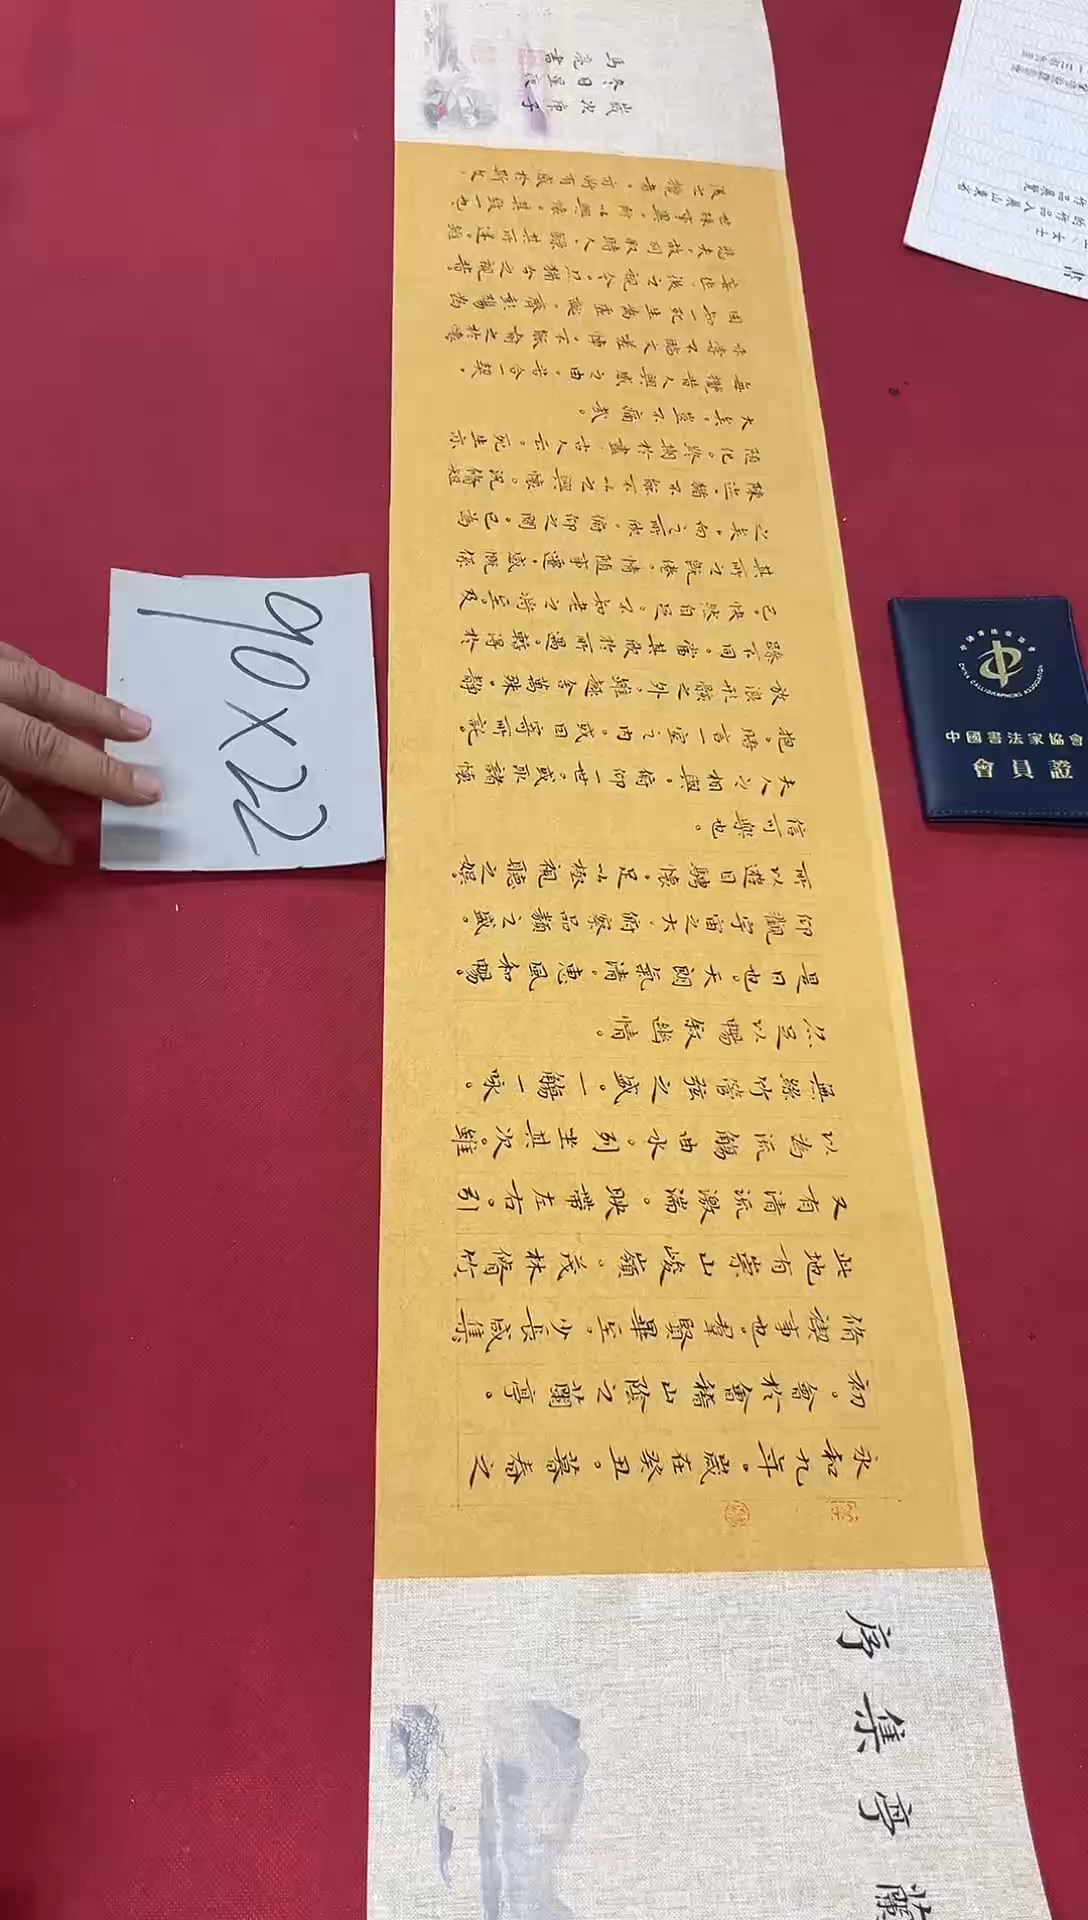 蘭亭集序
永和九年。歲在癸丑。暮春之
初。會於會稽山陰之蘭亭。
脩禊事也。羣賢畢至。少長咸集
此地有崇山峻嶺。茂林脩竹
又有清流激湍。映帶左右。引
以為流觴曲水。列坐其次。雖
無絲竹管弦之盛。一觴一咏。
亦足以暢敘幽情。
是日也。天朗氣清。惠風和暢。
仰觀宇宙之大。俯察品類之盛。
所以遊目騁懷。足以極視聽之娛。
信可樂也。
夫人之相與。俯仰一世。或取諸懷
抱。晤言一室之內。或因寄所託。
放浪形骸之外。雖趣舍萬殊。靜
躁不同。當其欣於所遇。暫得於
己。快然自足。不知老之將至。及
其所之既倦。情随事遷。感慨係
之矣。向之所欣。俯仰之間。已為
陳迹。猶不能不以之興懷。況脩短
随化。終期於盡。古人云。死生亦
大矣。豈不痛哉。
每攬昔人興感之由。若合一契。
未嘗不臨文嗟悼。不能喻之於懷
固知一死生為虛誕。齊彭殤為
妄作。後之視今。亦猶今之視昔。
悲夫。故列時人。錄其所述。雖
世殊事異。所以興懷。其致一也
後之攬者。亦將有感於斯文。
歲次庚子
冬日星夜
馬亮書
90×22
中國書法家協會
CHINA CALLIGRAPHERS ASSOCIATION
中國書法家協會
會員證